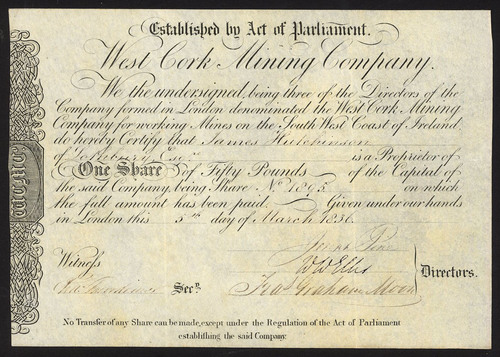 Established by Act of Parliament.
West Cork Mining Company.
We the undersigned, being three of the Directors of the
Company formed in London denominated the West Cork Mining
Company for working Mines on the South West Coast of Ireland,
do hereby Certify that James Hutchinson
of Lothbury Esqr. is a Proprietor of
One Share of Fifty Pounds of the Capital of
the said Company, being Share No. 1895 on which
the full amount has been paid. Given under our hands
in London this 5th day of March 1836.
Witness
W W Ellis
Secy.
Fras Graham Moon
Directors.
No Transfer of any Share can be made, except under the Regulation of the Act of Parliament
establishing the said Company.